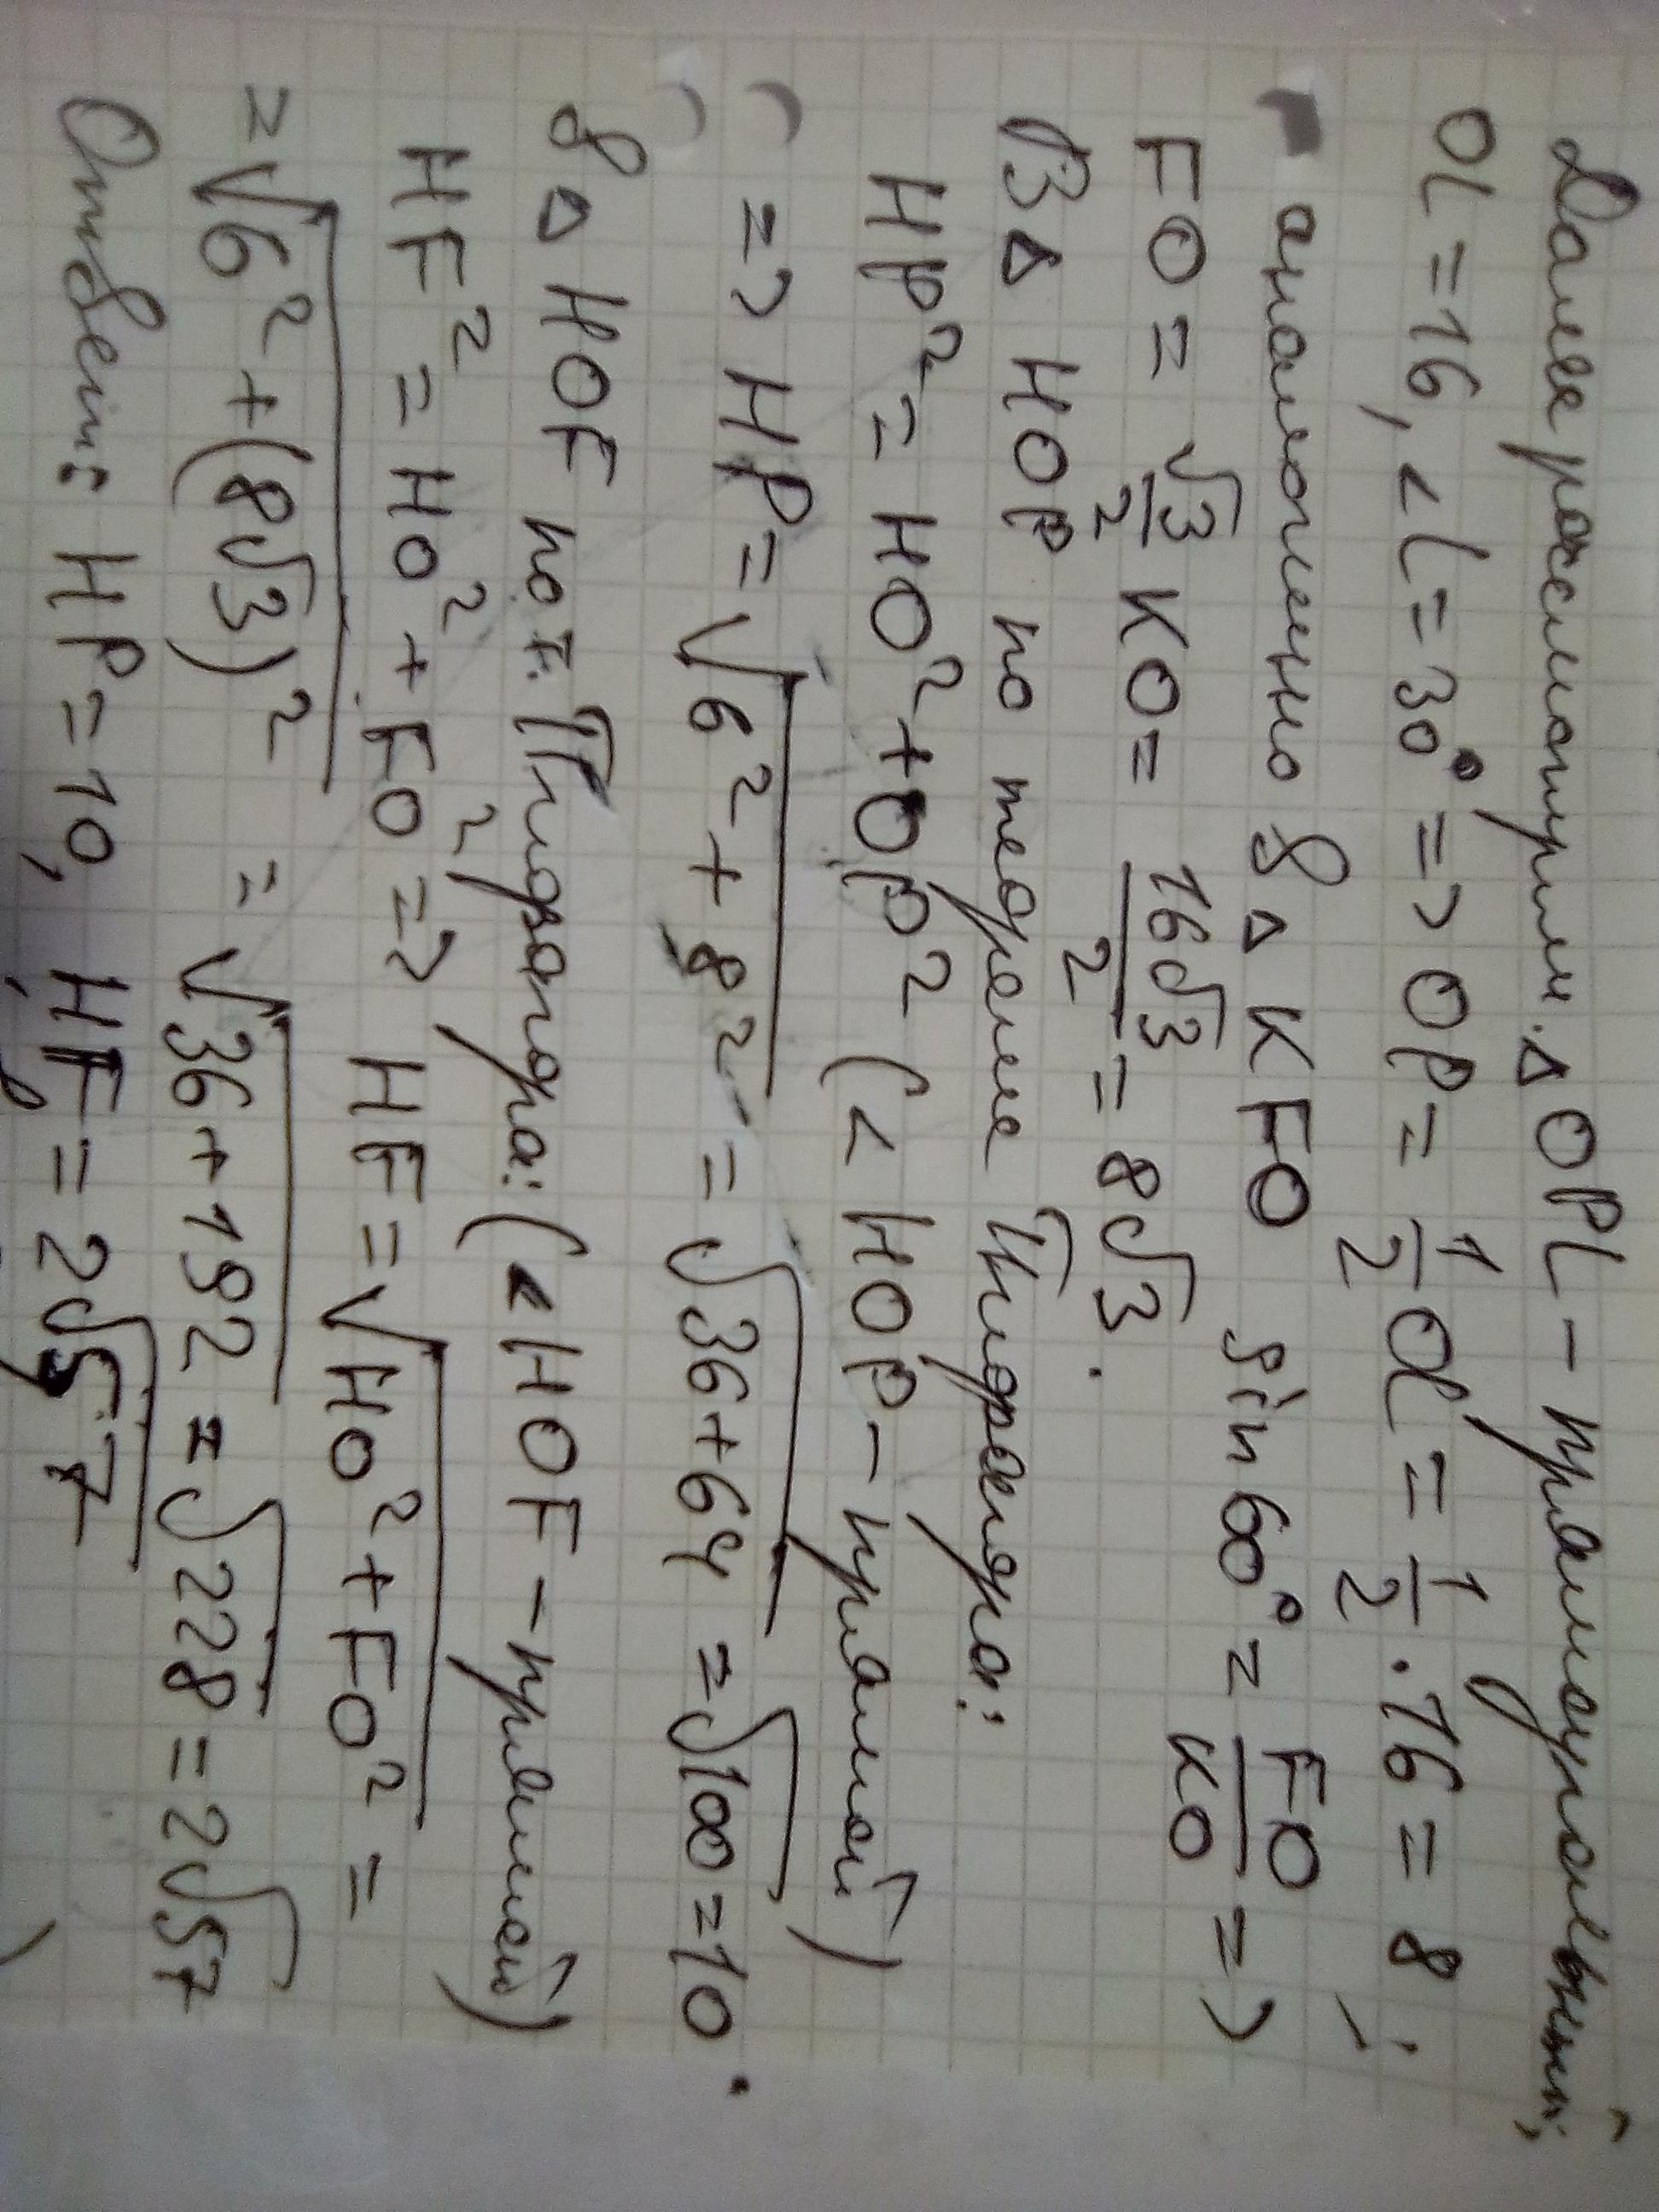 Далее рассмотрим △OPL – прямоугольный;
OL = 16, <L = 30° => OP = 1/2 OL = 1/2 · 16 = 8;
аналогично в △KFO sin 60° = FO/KO =>
FO = √3/2 KO = 16√3/2 = 8√3.
В △ HOP по теореме Пифагора:
HP² = HO² + OP² (< HOP – прямой)
=> HP = √6² + 8² = √36+64 = √100 = 10.
В △ HOF по т. Пифагора: (<HOF – прямой)
HF² = HO² + FO² => HF = √HO² + FO² =
= √6² + (8√3)² = √36+192 = √228 = 2√57
Ответ: HP = 10, HF = 2√57